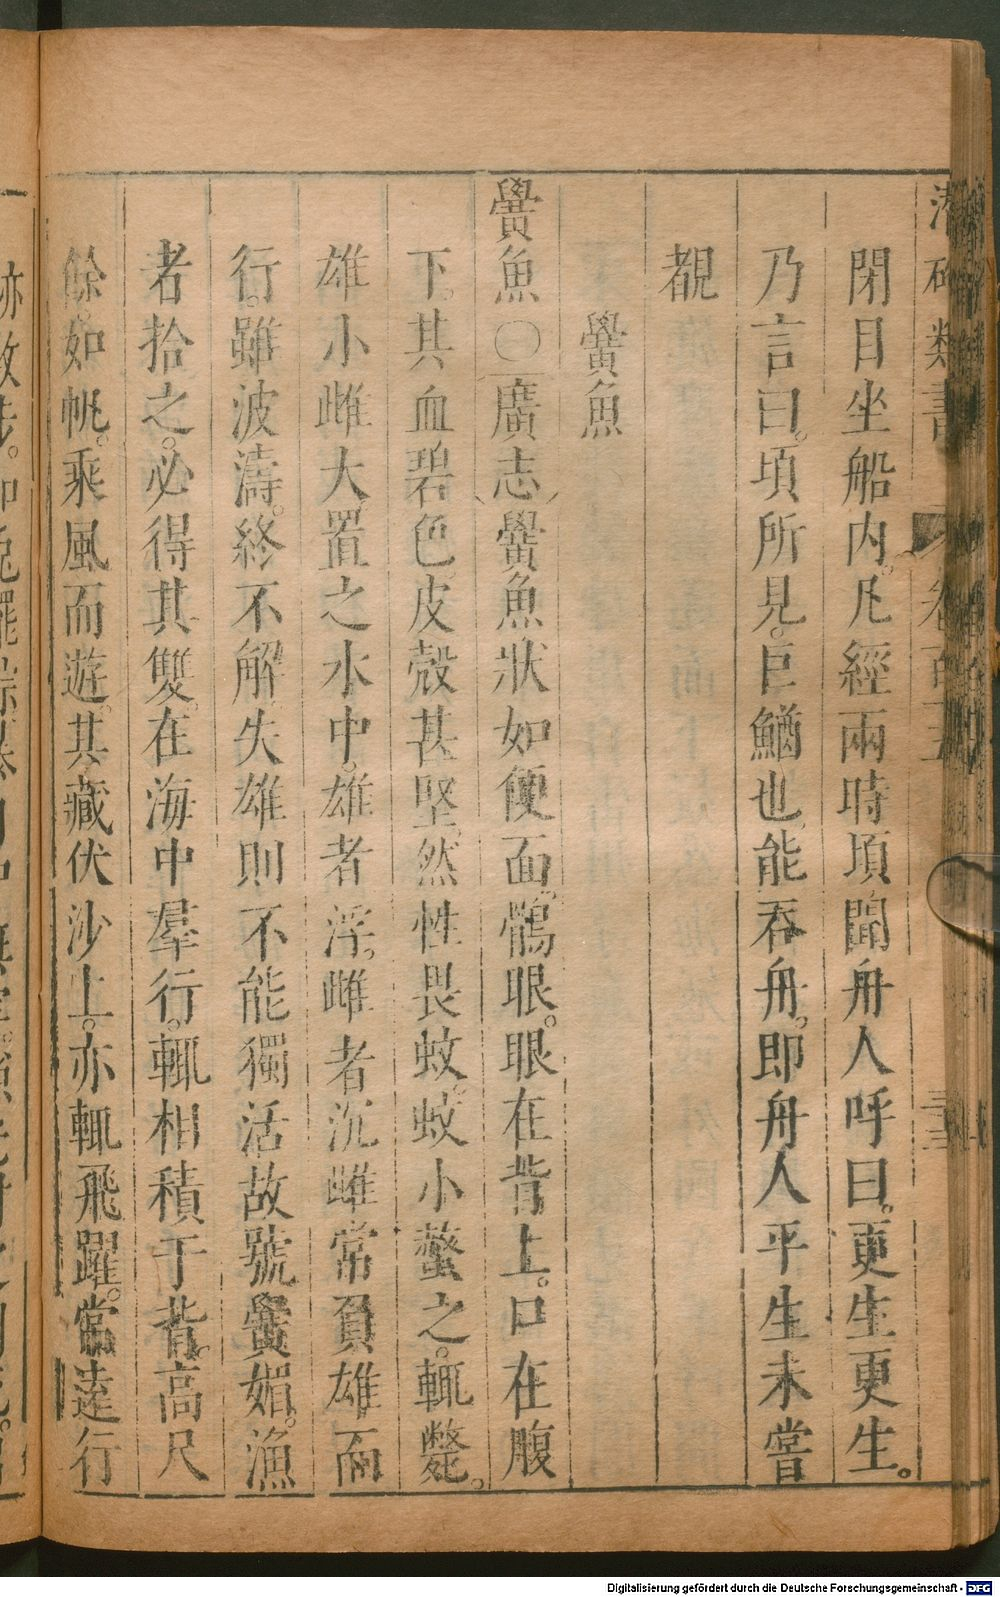 類書 卷百五
閉目坐船內。凡經兩時頃聞舟人呼曰。更生更生。
乃言曰。頃所見。巨鰌也。能吞舟。即舟人平生未嘗
覩
鱟魚
鱟魚〇廣志鱟魚狀如便面。鶻眼。眼在背上。口在腹
下。其血碧色。皮殼甚堅。然性畏蚊。蚊小螫之。輒斃。
雄小雌大。置之水中。雄者浮。雌者沉。雌常負雄而
行。雖波濤。終不解。失雄則不能獨活。故號鱟媚。漁
者拾之。必得其雙。在海中羣行。輒相積于背。高尺
餘。如帆。乘風而遊。其藏伏沙上。亦輒飛躍。當逵行
Digitalisierung gefördert durch die Deutsche Forschungsgemeinschaft - DFG